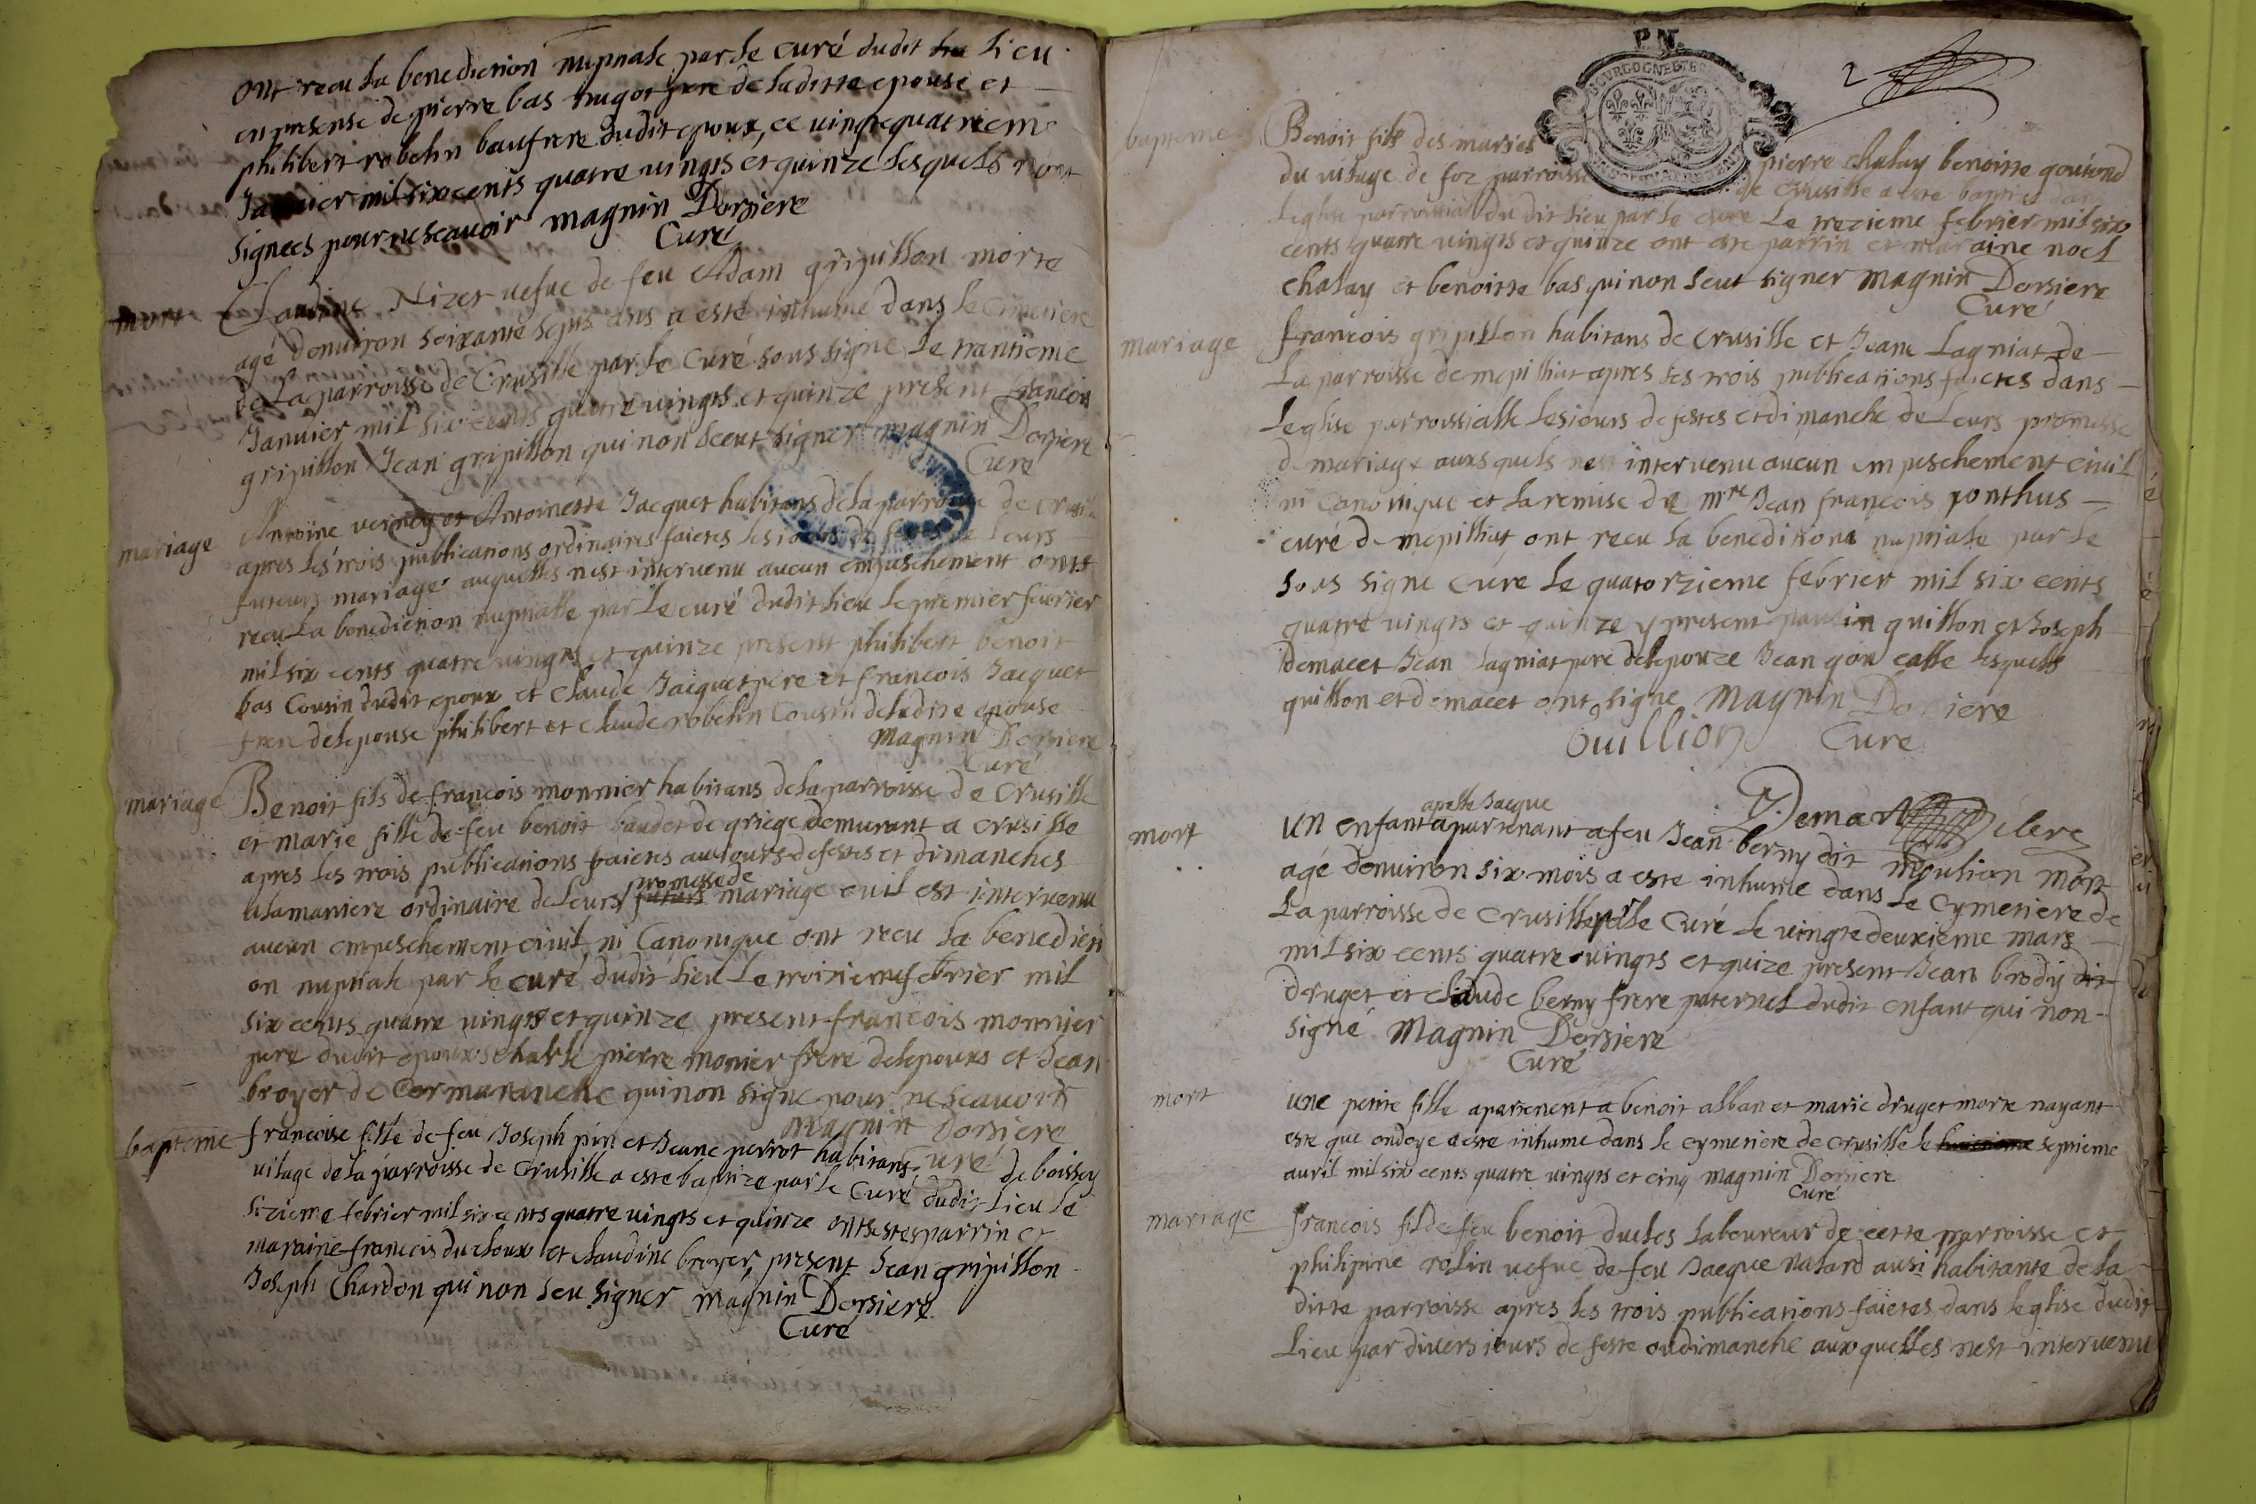 ont receu la benediction nuptiale par le curé dudit lieu
en presense de pierre bas hugot pere de laditte epouse et
philibert robelin baufrere dudit epoux, ce vingtequatriem
Janvier mil six cents quatre vingts et quinze lesquels nont
signees pour ne scavoir magnin Dorsiere
Curé
mort
Claudine Nizet vefve de feu Adam gripillon morte
agé denuiron soixante septs ans a esté inhumé dans le cimetiere
de La parroisse de Crusille par le Curé sous signé Le trantieme
Janvier mil six cents quatre vingts et quinze present francois
gripillon Jean gripillon qui non sceut signer magnin Dorsiere
Curé
mariage
Antoine verney et Antoinette Jacquet habitans de la parroisse de Crusil
apres les trois publications ordinaires faictes les iours de festes de Leurs
futeurs mariage auquelles nest intervenu aucun empeschement onts
receu La benediction nuptialle par Le curé dudit lieu le premier fevrier
mil six cents quatre vingts et quinze present philibert benoit
bas Cousin dudit epoux et Claude Jacquet pere et francois Jacquet
frere de lepouse philibert et claude robelin Cousin de ladite epouse
Magnin Dorsiere
Curé
mariage
Benoit fils de francois monnier habitans de la parroisse de Crusille
et marie fille de feu benoit baudet de griege demurant a crusille
apres les trois publications faictes aux iours de festes et dimanches
a la maniere ordinaire de Leurs futurs promesse de mariage ou il est intervenu
aucun empeschement civil ni Canonique ont receu La benedicti
on nuptiale par le curé dudit lieu Le troixieme febrier mil
six cents quatre vingts et quinze present francois monnier
pere dudit epoux charle pierre monier frere de lepoux et Jean
broyer de Cormaranche qui non signe pour ne scavoir
Magnin Dorsiere
Curé
bapteme
francoise fille de feu Joseph pin et Jeane perrot habitans de boissey
vilage de la parroisse de Crusille a este baptize par le Curé dudit Lieu le
sezieme febrier mil six cents quatre vingts et quinze onts estes parrin et
maraine francois ducloux et claudine broyer present Jean gripillon
Joseph Chardon qui non seu signer magnin Dorsiere
Curé
P.N.
2
bapteme
Benoit fils des maries pierre chalay benoitte goutond
du vilage de foz parroisse de Crusille a este baptizé dans
leglise parroissial du dit lieu par le curé Le trezieme febrier mil six
cents quatre vingts et quinze ont ete parrin et maraine noel
chalay et benoitte bas qui non seut signer magnin Dorsiere
Curé
mariage
francois gripillon habitans de Crusille et Jeane Lagniat de
La parroisse de mepilliat apres les trois publications faictes dans
Leglise parroissialle les iours de festes et dimanche de Leurs promesse
de mariage auxquels nest intervenu aucun empeschement civil
ni Canonique et la remise de mre Jean francois ponthus
curé de mepilliat ont receu la benedition nuptiale par le
sous signe Curé le quatorzieme febrier mil six cents
quatre vingts et quinze y present guillon et Joseph
demacet Jean Lagniat pere de lepouze Jean lesquels
guillon et demacet ont signe Magnin Dorsiere
Guillion Curé
Demar clerc
mort
un enfant apelle Jacque apartenant a feu Jean berny dit moulion mort
agé denuiron six mois a este inhume dans Le Cymetiere de
La parroisse de Crusille par le Curé Le vingtedeuxieme mars
mil six cents quatre vingts et quize present Jean brody dit
druget et claude berny frere paternel dudit enfant qui non
signé Magnin Dorsiere
Curé
mort
une petite fille apartenent a benoit alban et marie druget morte nayant
este que ondoye a este inhume dans le cymetiere de crusille le huictieme septieme
auril mil six cents quatre vingts et cinq magnin Dorsiere
Curé
mariage
francois fil de feu benoit ducles laboureur de cette parroisse et
philipine relin vefve de feu Jacque natard ausi habitante de la
ditte parroisse apres les trois publications faietes dans leglise dudit
Lieu par divers iours de feste ou dimanche auxquelles nest intervenu